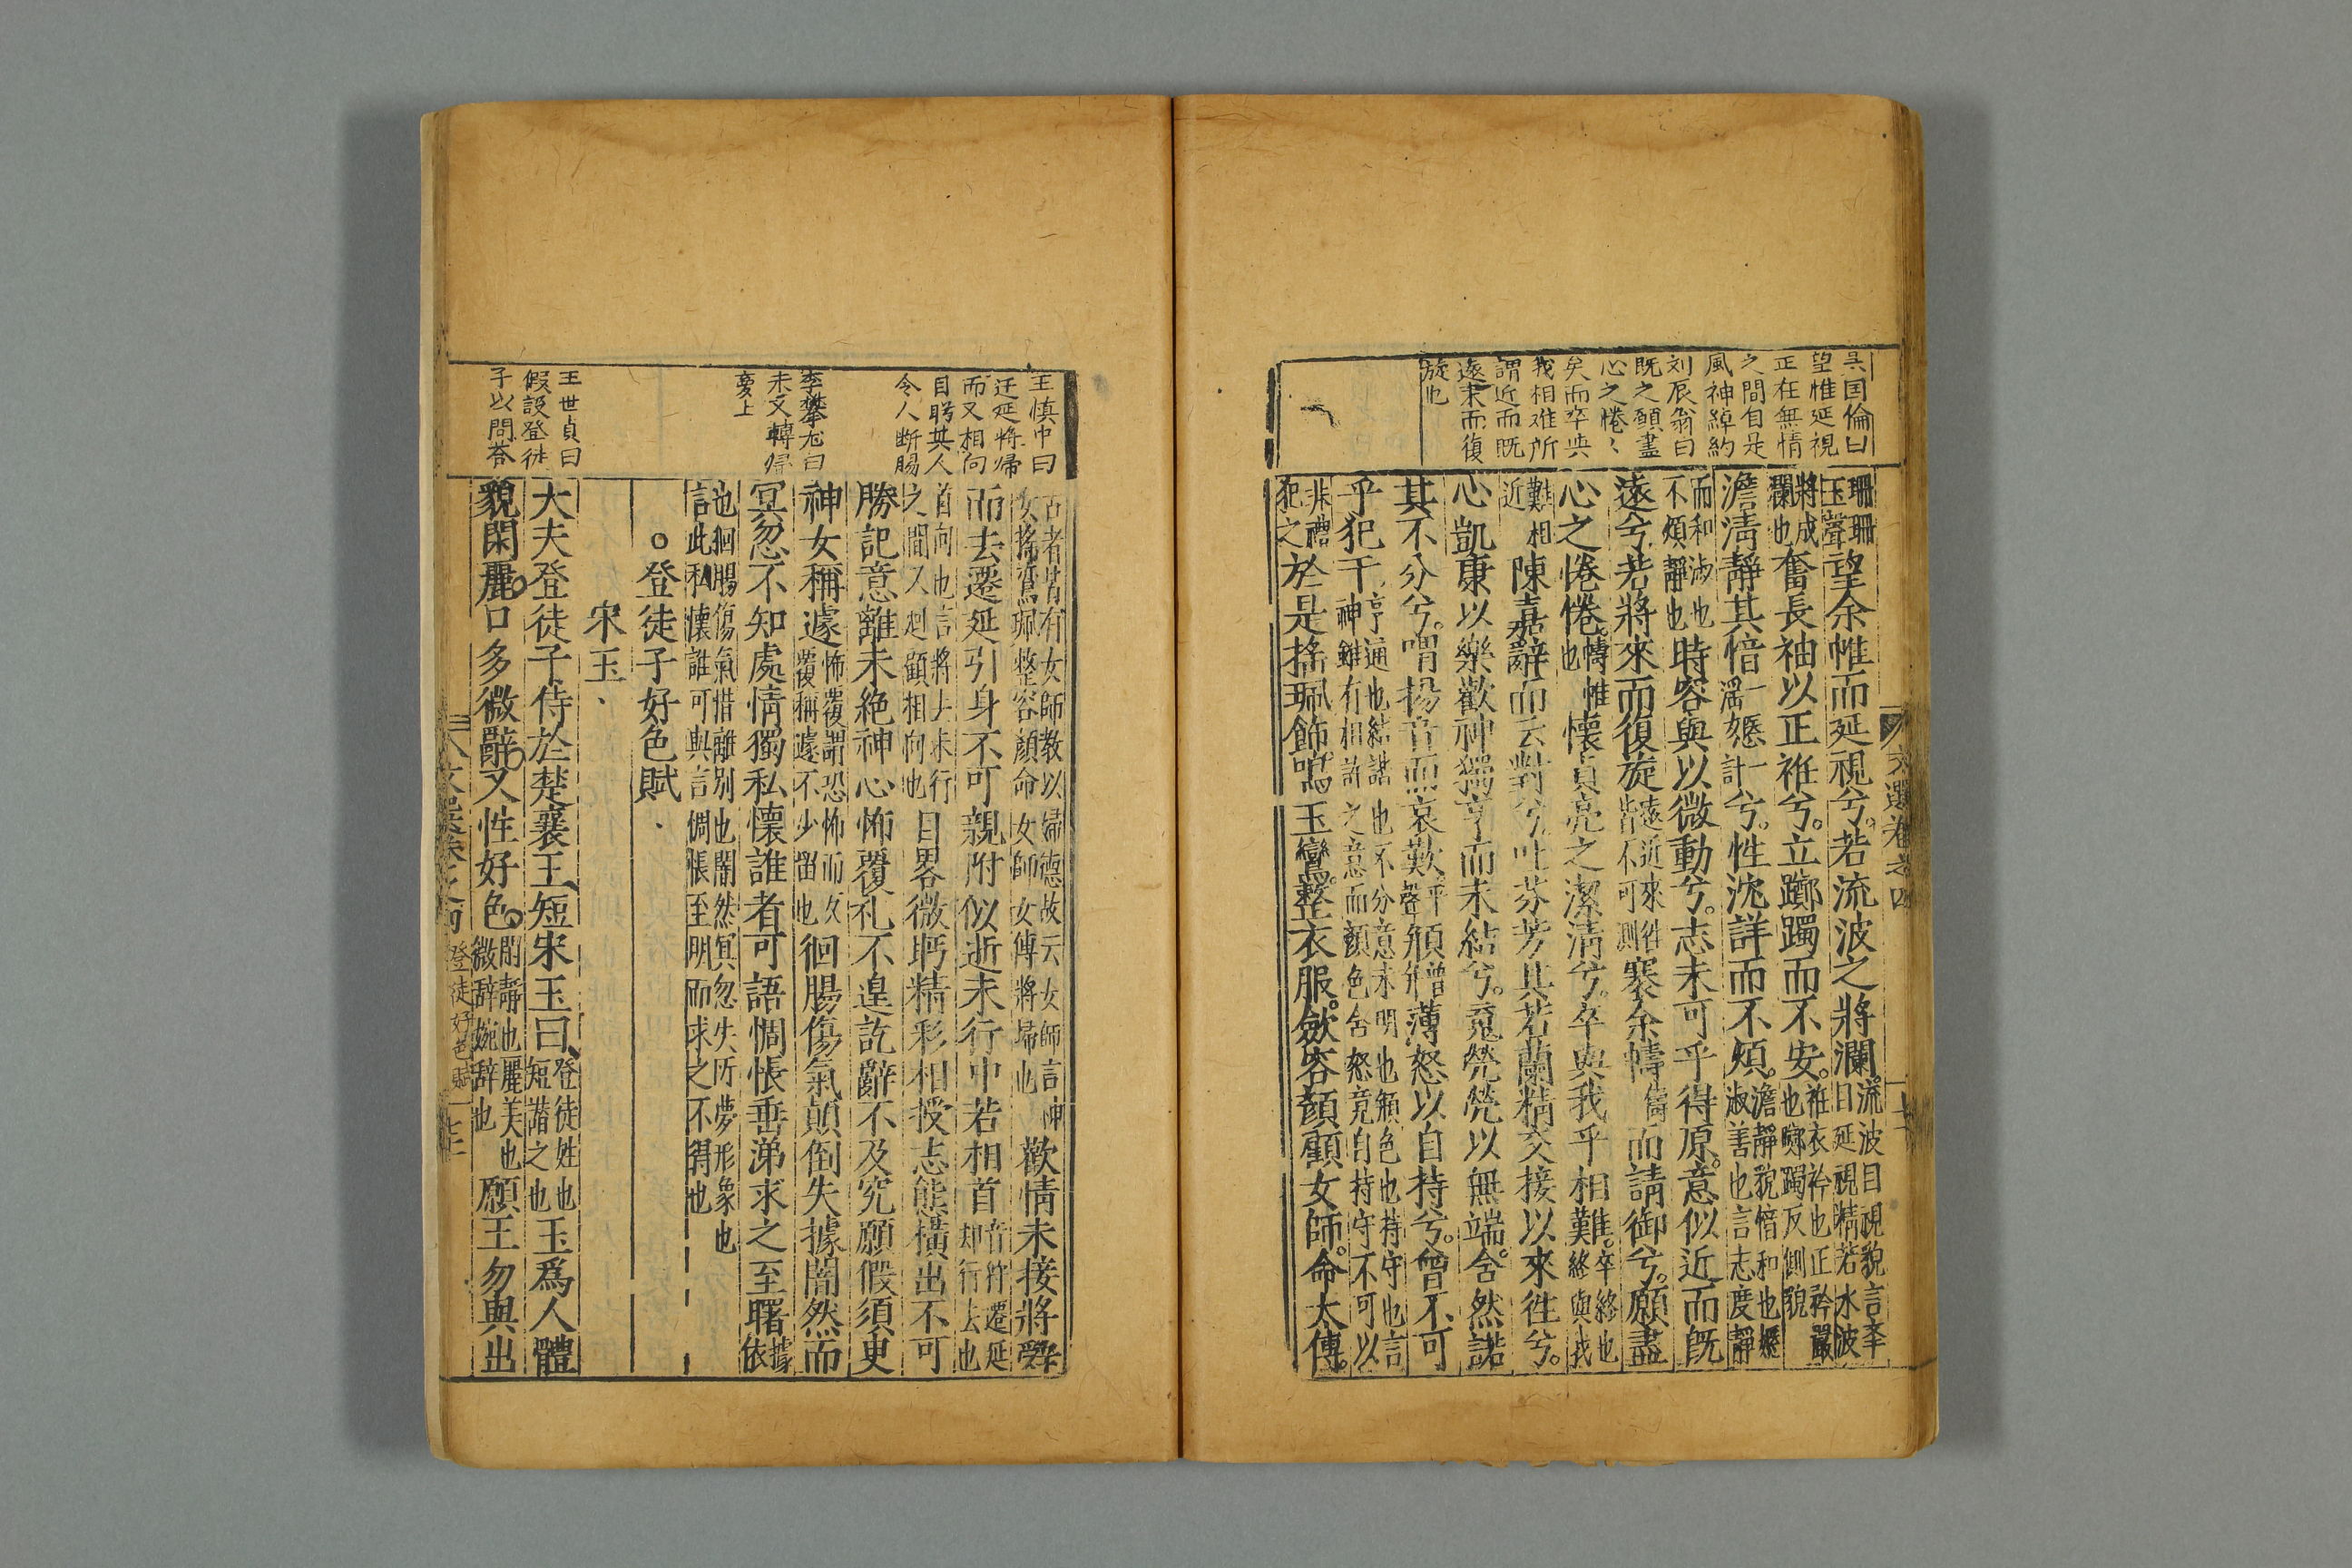 吴囯倫曰
望惟延視
正在無情
之間自是
風神綽約
刘辰翁曰
既之願盡
心之惓〻
矣而卒與
我相难所
謂近而既
遠来而復
旋也
珊珊
玉聲
望余帷而延視兮。若流波之將瀾。
流波目視貌言举
目延視精若水波
將成
瀾也
奮長袖以正袵兮。立躑躅而不安。
袵衣衿也正衿嚴
也躑躅反側貌
澹清靜其愔
淐
嫕
計
兮。性沈詳而不煩。
澹靜貌愔和也嫕
淑善也言志度靜
而和淑也
不煩靜也
時容與以微動兮。志未可乎得原。意似近而既
遠兮。若將來而復旋
遠近來往
皆不可測
褰余幬
儔
而請御兮。願盡
心之惓惓。
幬帷
也
懷貞亮之潔清兮。卒與我乎相難。
卒終也
終與我
難相
近
陳嘉辭而云對兮。吐芬芳其若蘭精交接以來徃兮。
心凱康以樂歡神獨亨而未結兮。䰟煢煢以無端。含然諾
其不分兮。喟揚音而哀歎
平
聲
頩
薄怒以自持兮。曾不可
乎犯干
亨通也結諾也不分意未明也頩色也持守也言
神雖有相許之意而顔色含怒竟自持守不可以
非禮
犯之
於是揺珮飾。鳴玉鸞。整衣服。斂容顔顧女師。命太傅。
文選卷之四
王慎中曰
迁延将帰
而又相向
目眄其人
令人断腸
李攀尤曰
末又轉歸
夣上
王世貞曰
假設登徒
子以問荅
古者皆有女師教以婦德故云女師言神
女揺鸞珮整容顔命女師女傅將歸也
歡情未接將辤
而去遷延引身不可親附似逝未行中若相首
音狩遷延
却行去也
首向也言將上未行
之間又廻顧相向也
目畧微眄精彩相授志態横出不可
勝記意離未絶神心怖覆礼不遑訖辭不及究願假須㪅
神女稱遽
怖覆謂恐怖而久
覆稱遽不少留也
徊腸傷氣顛倒失據闇然而
冥忽不知處情獨私懷誰者可語惆悵垂涕求之至曙
據
依
也徊腸傷氣惜離別也闇然冥忽失所夢形象也
言此私懷誰可與言惆悵至明而求之不得也
○登徒子好色賦
宋玉
大夫登徒子侍於楚襄王短宋玉曰
登徒姓也
短譖之也
玉爲人體
貌閑麗口多微辭又性好色
閑静也麗美也
微辞婉辞也
願王勿與出
文選卷之四
登徒好色賦